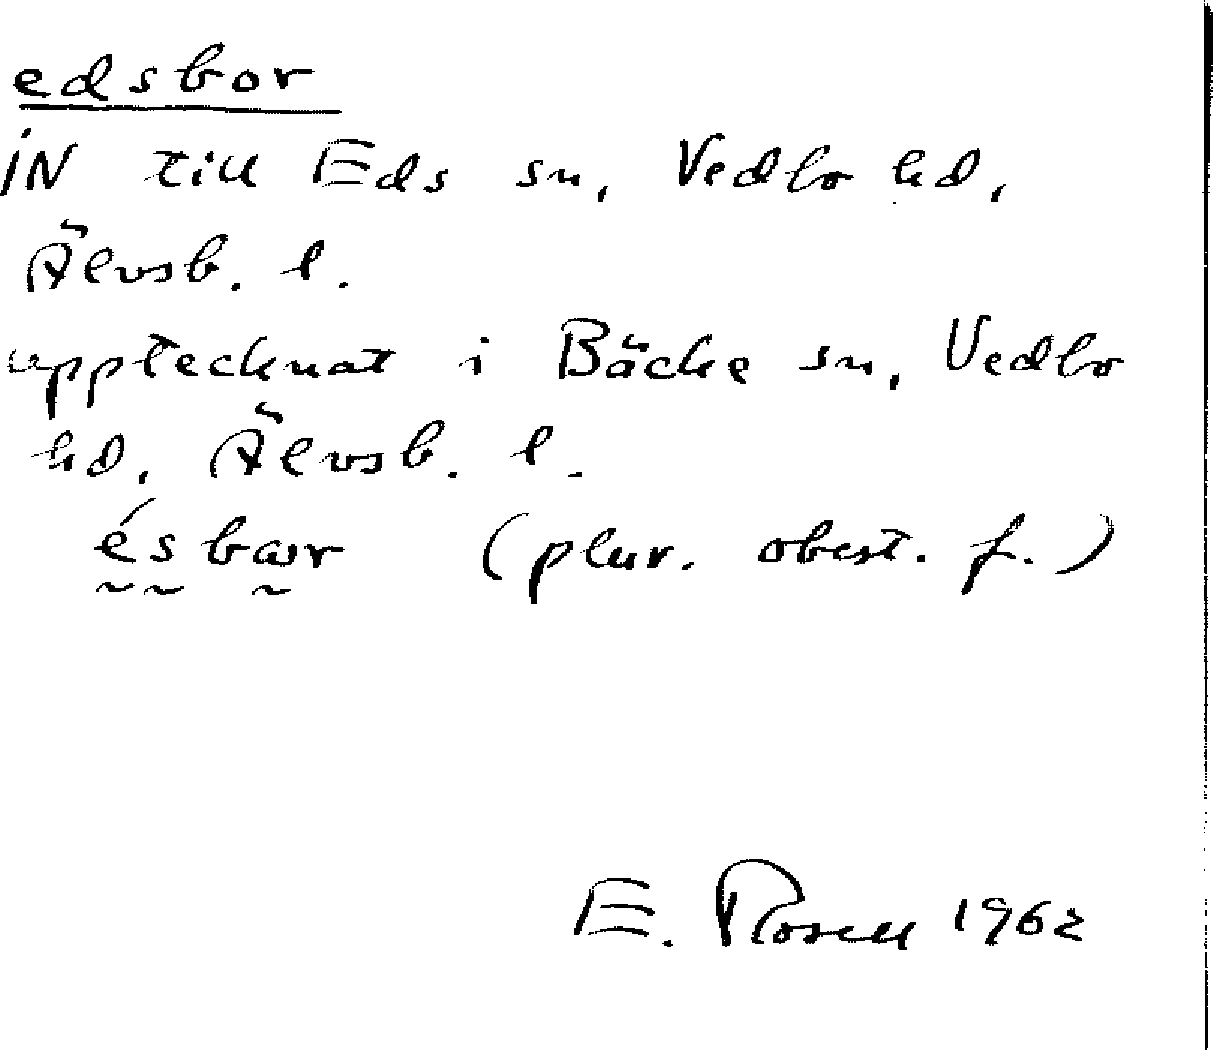 edsbor
iN till Eds sn, Vedbo hd,
Älvsb. l.
upptecknat i Bäcke sn, Vedbo
hd, Älvsb. l.
ésbɷr (plur. obest. f.)
E. Rosell 1962